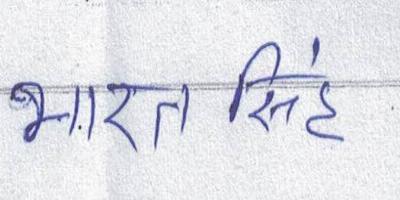 भारत सिंह